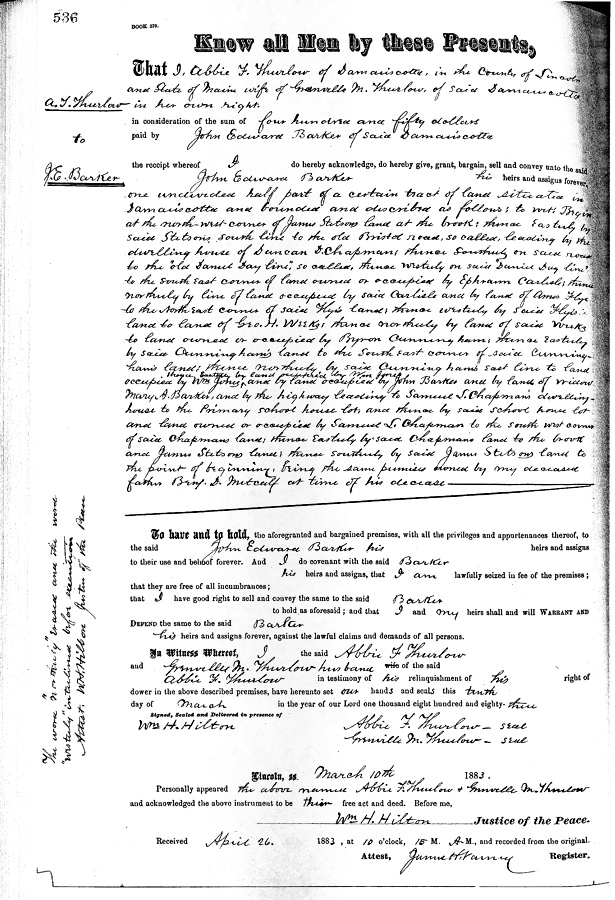 536
BOOK 270.
Know all Men by these Presents,
That I, Abbie F. Thurlow of Damariscotta, in the County of Lincoln
and State of Maine wife of Grenville M. Thurlow, of said Damariscotta
A. F. Thurlow
in her own right
in consideration of the sum of four hundred and fifty dollars
to
paid by John Edward Barker of said Damariscotta
J. E. Barker
the receipt whereof I do hereby acknowledge, do hereby give, grant, bargain, sell and convey unto the said
John Edward Barker his heirs and assigns forever,
one undivided half part of a certain tract of land situated in
Damariscotta and bounded and described as follows; to wit: Begin
at the north-west corner of James Stetsons land at the brook; thence Easterly by
said Stetsons, south line to the old Bristol road, so called, leading by the
dwelling house of Duncan D. Chapman; thence Southerly on said road
to the "old Daniel Day line", so called, thence westerly on said "Daniel Day line"
to the South East corner of land owned or occupied by Ephraim Carlisle; thence
northerly by line of land occupied by said Carlisle and by land of Amos Flye
to the North East corner of said Flye's land; thence westerly by said Flye's
land to land of Geo. H. Weeks; thence northerly by land of said Weeks
to land owned or occupied by Byron Cunningham; thence Easterly
by said Cunningham's land to the South East corner of said Cunning-
ham's land; thence northerly by said Cunningham's east line to land
thence Easterly by land occupied by Wm Jones
occupied by Wm Jones, and by land occupied by John Barker and by land of widow
Mary A. Barker, and by the highway leading to Samuel L. Chapman's dwelling-
house to the Primary school house lot, and thence by said school house lot
and land owned or occupied by Samuel L. Chapman to the south west corner
of said Chapmans land; thence Easterly by said Chapman's land to the brook
and James Stetsons land; thence southerly by said James Stetsons land to
the point of beginning, being the same premises owned by my deceased
father Benj. D. Metcalf at time of his decease
To have and to hold, the aforegranted and bargained premises, with all the privileges and appurtenances thereof, to
the said John Edward Barker his heirs and assigns
to their use and behoof forever. And I do covenant with the said Barker
his heirs and assigns, that I am lawfully seized in fee of the premises;
that they are free of all incumbrances;
that I have good right to sell and convey the same to the said Barker
to hold as aforesaid; and that I and my heirs shall and will WARRANT AND
DEFEND the same to the said Barker
his heirs and assigns forever, against the lawful claims and demands of all persons.
In Witness Whereof, I the said Abbie F. Thurlow
and Grenville M. Thurlow husband wife of the said
Abbie F. Thurlow in testimony of his relinquishment of his right of
dower in the above described premises, have hereunto set our hands and seals this tenth
day of March in the year of our Lord one thousand eight hundred and eighty-three
Signed, Sealed and Delivered in presence of
Wm H. Hilton Abbie F. Thurlow – seal
Grenville M. Thurlow – seal
The word "northerly" erased and the word
"westerly" interlined before execution
Attest: W. H. Hilton Justice of the Peace
Lincoln, ss. March 10th 1883.
Personally appeared the above named Abbie F. Thurlow & Grenville M. Thurlow
and acknowledged the above instrument to be their free act and deed. Before me,
Wm H. Hilton Justice of the Peace.
Received April 26. 1883, at 10 o'clock, 15 M. A-M., and recorded from the original.
Attest, James H. Varney Register.